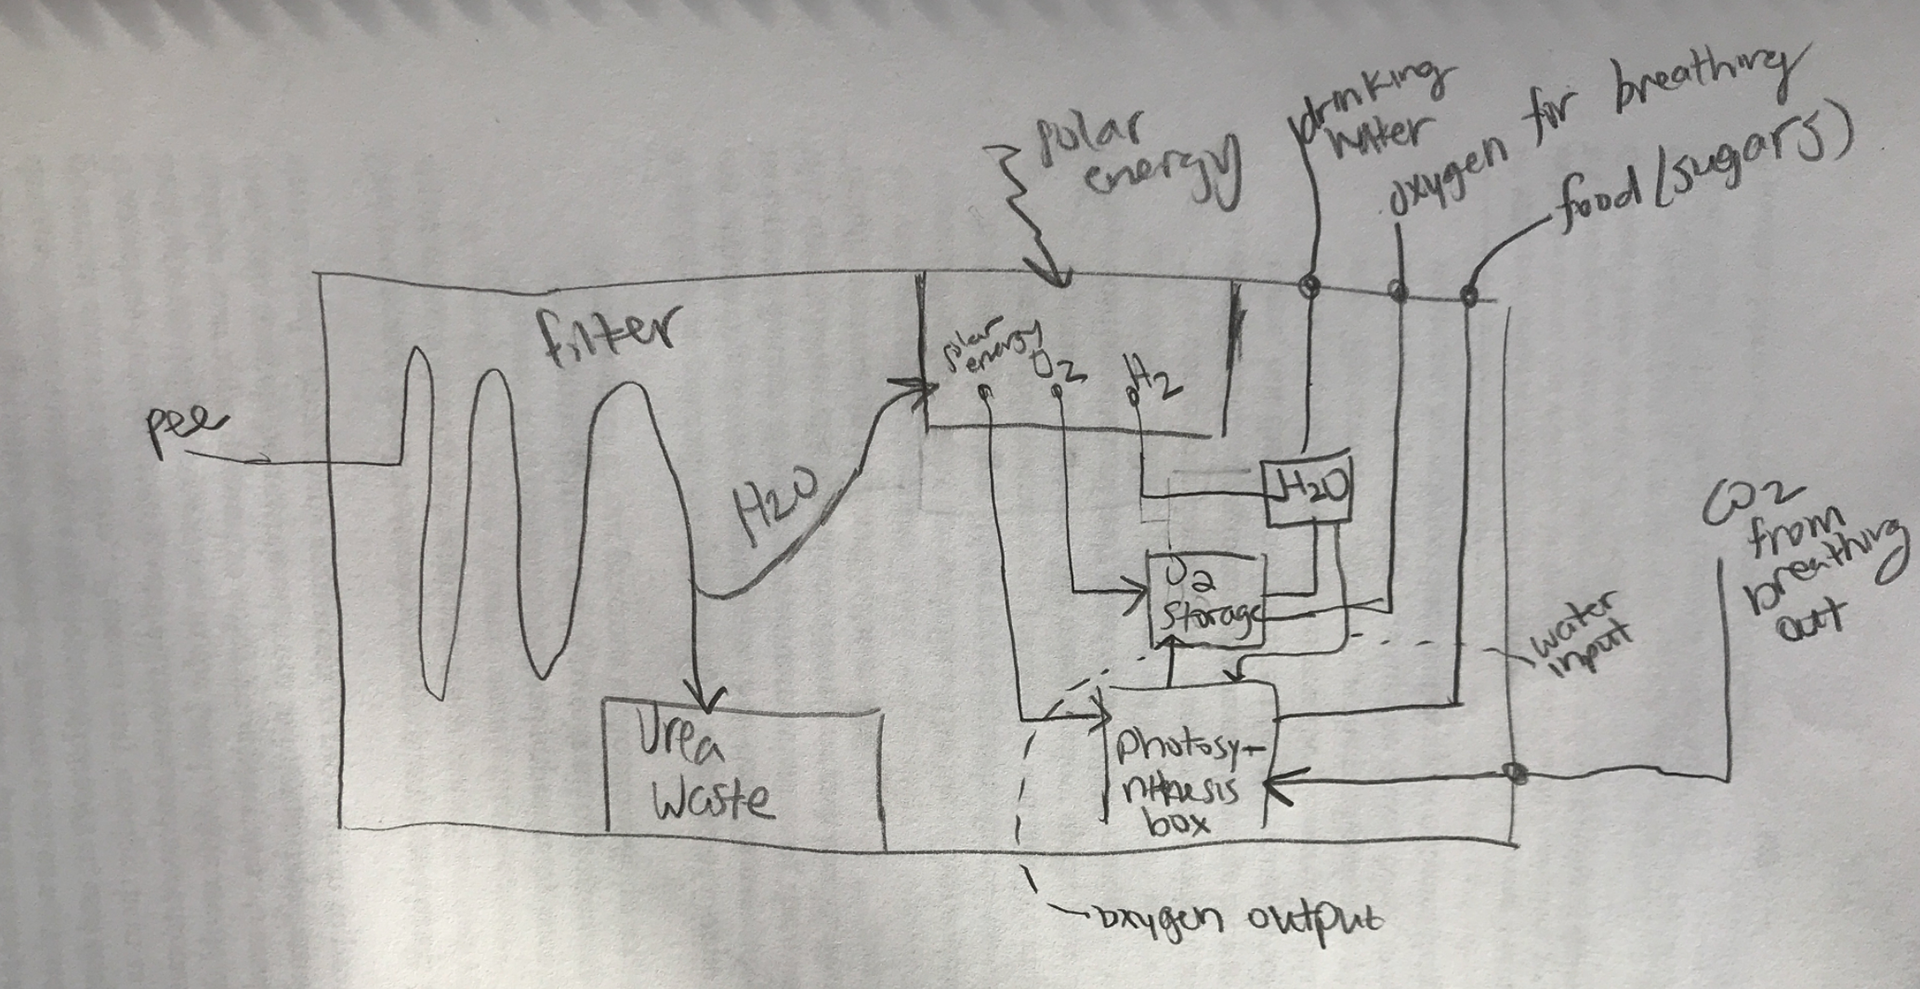 solar
energy
drinking
water
oxygen for breathing
food (sugars)
filter
solar
energy
O2
H2
pee
H2O
H2O
O2
storage
CO2
from
breathing
out
water
input
Urea
Waste
photosy-
nthesis
box
oxygen output